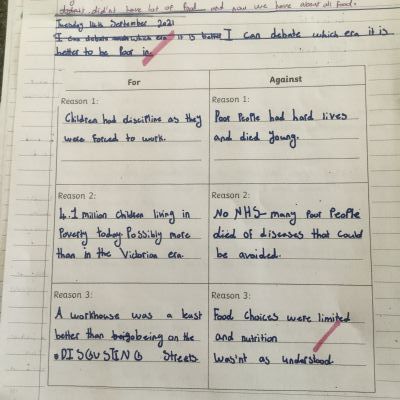 didn't have lot of food and now we have about all food.
Tuesday 14th September 2021
I can debate which era it is better I can debate which era it is
better to be Poor in.
For
Against
Reason 1:
Children had discipline as they
were forced to work.
Reason 1:
Poor People had hard lives
and died young.
Reason 2:
4.1 million children living in
Poverty today Possibly more
than in the Victorian era.
Reason 2:
No NHS- many Poor People
died of diseases that could
be avoided.
Reason 3:
A workhouse was a least
better than being on the
DISGUSTING Streets
Reason 3:
Food choices were limited
and nutrition
was'nt as understood.